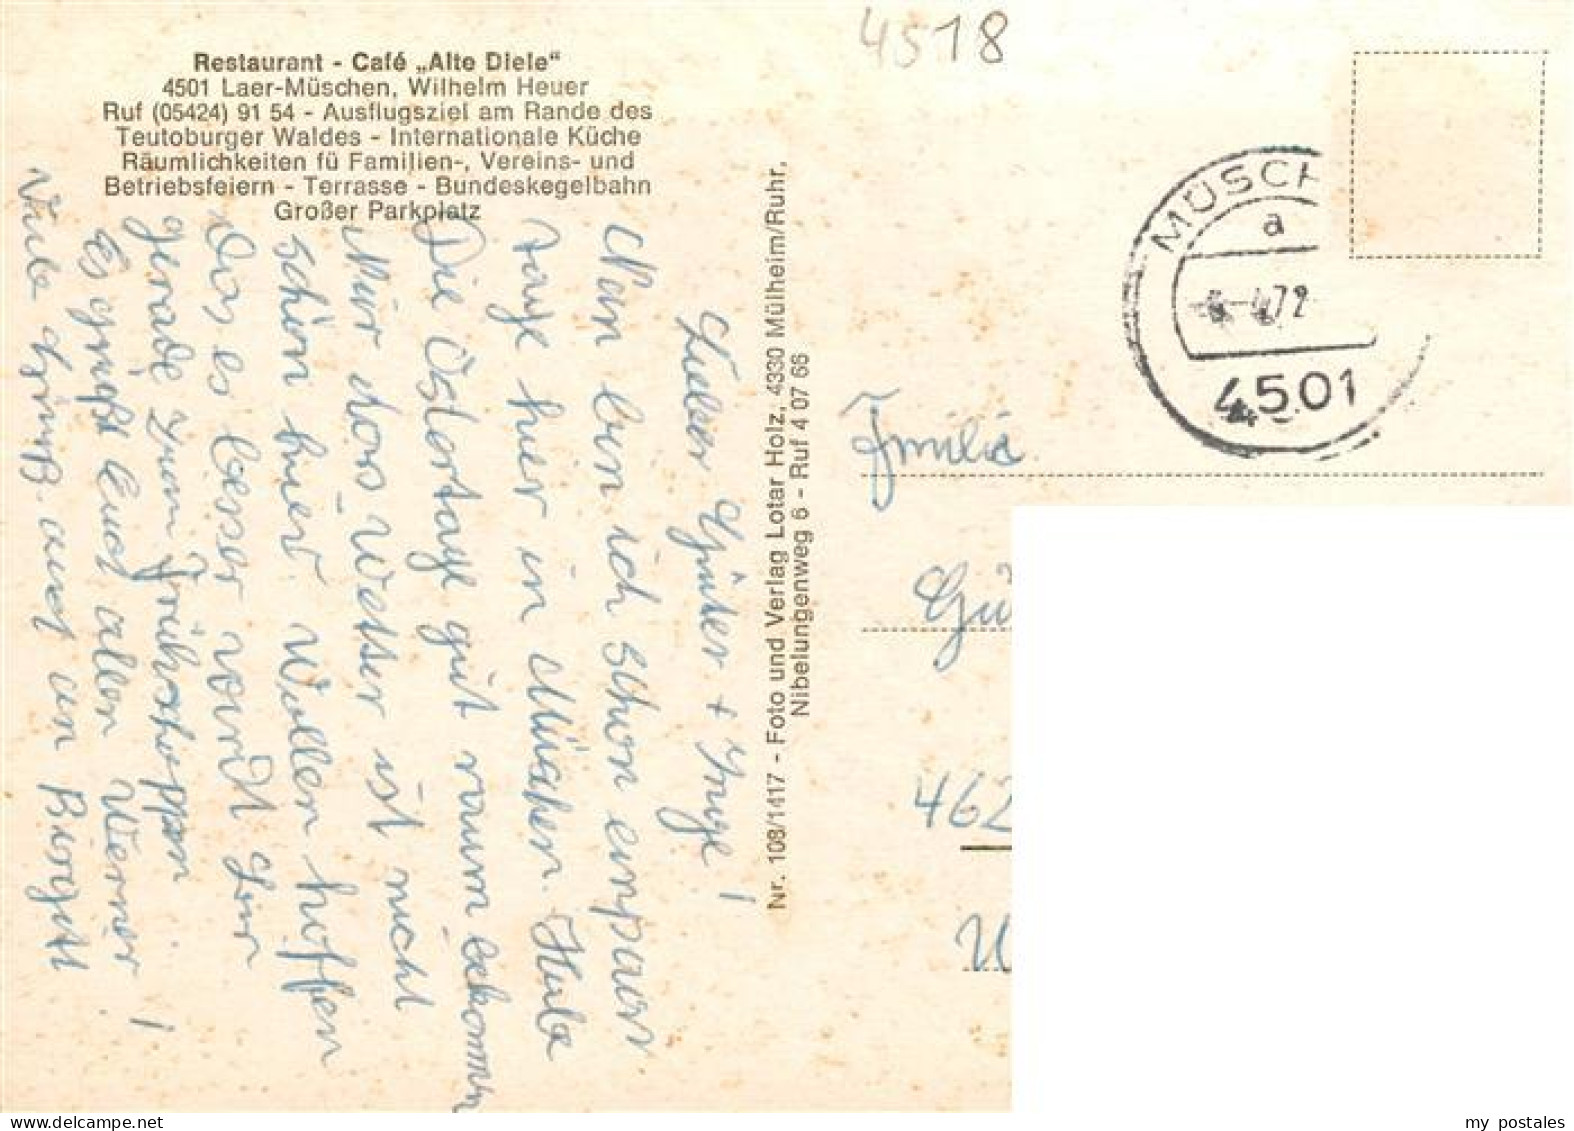 4518
Restaurant - Café „Alte Diele“
4501 Laer-Müschen, Wilhelm Heuer
Ruf (05424) 91 54 - Ausflugsziel am Rande des
Teutoburger Waldes - Internationale Küche
Räumlichkeiten fü Familien-, Vereins- und
Betriebsfeiern - Terrasse - Bundeskegelbahn
Großer Parkplatz
Lieber Günter + Inge!
Nun bin ich schon ein paar
Tage hier in Müschen. Habe
Die Ostertage gut rum bekommen
Nur das Wetter ist nicht
schön hier. Wollen hoffen
Das es besser wird. Bin
gerade zum Frühschoppen
Es grüßt Euch allen Werner!
Viele Grüße auch an Birgitt
Nr. 108/1417 - Foto und Verlag Lotar Holz, 4330 Mülheim/Ruhr,
Nibelungenweg 6 - Ruf 4 07 66
MÜSCH
a
4.72
4501
Familie
Gü
462
U
my postales